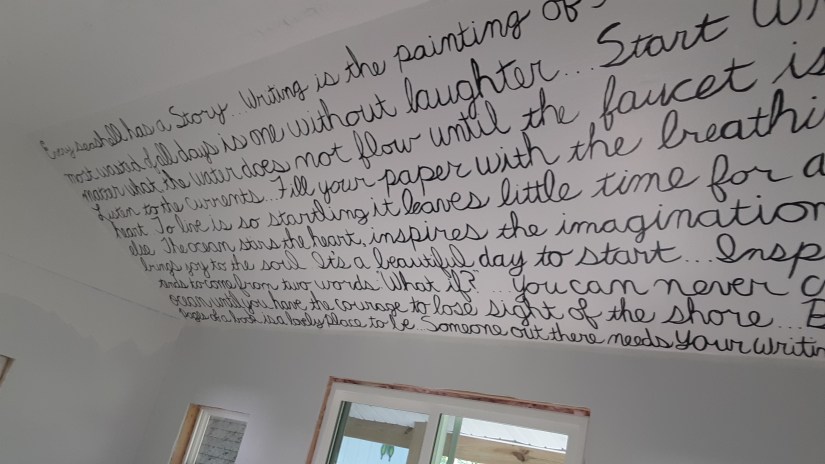 Every seashell has a Story... Writing is the painting of
most wasted of all days is one without laughter... Start
matter what, the water does not flow until the faucet is
Listen to the currents... Fill your paper with the
heart To live is so startling it leaves little time for
else The ocean stirs the heart, inspires the imagination
brings joy to the soul It's a beautiful day to start...
ends to come from two words "What if?" ... you can never
ocean until you have the courage to lose sight of the shore...
Pages of a book is a lovely place to be Someone out there needs your